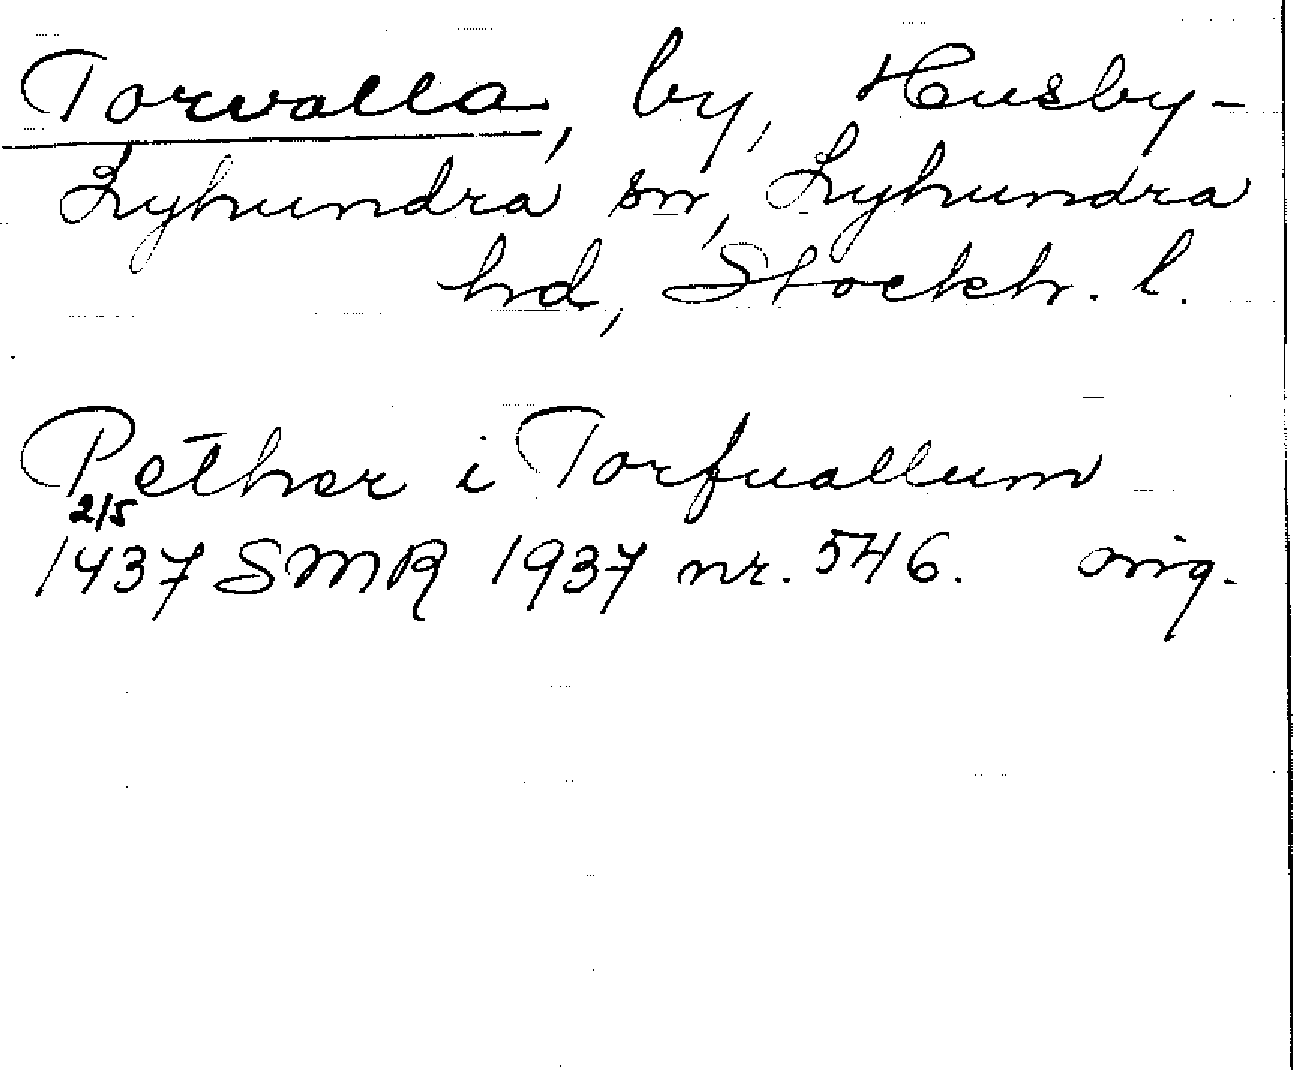 Torvalla, by, Husby-
Lyhundra sn, Lyhundra
hd, Stockh. l.
Pether i Torfuallum
2/5
1437 SMR 1937 nr. 546. orig.